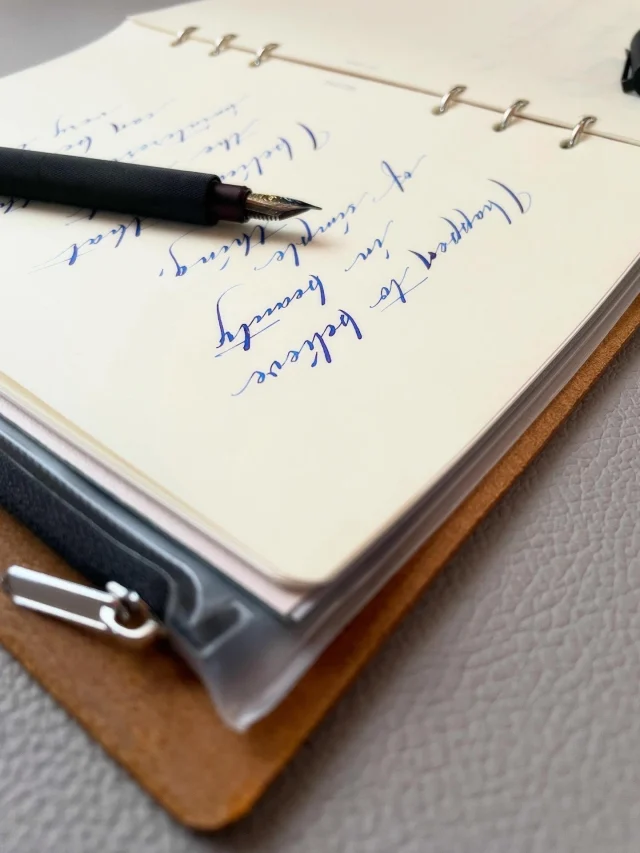 I happen to believe
in beauty
of simple thing.
I believe that
the
can be
very